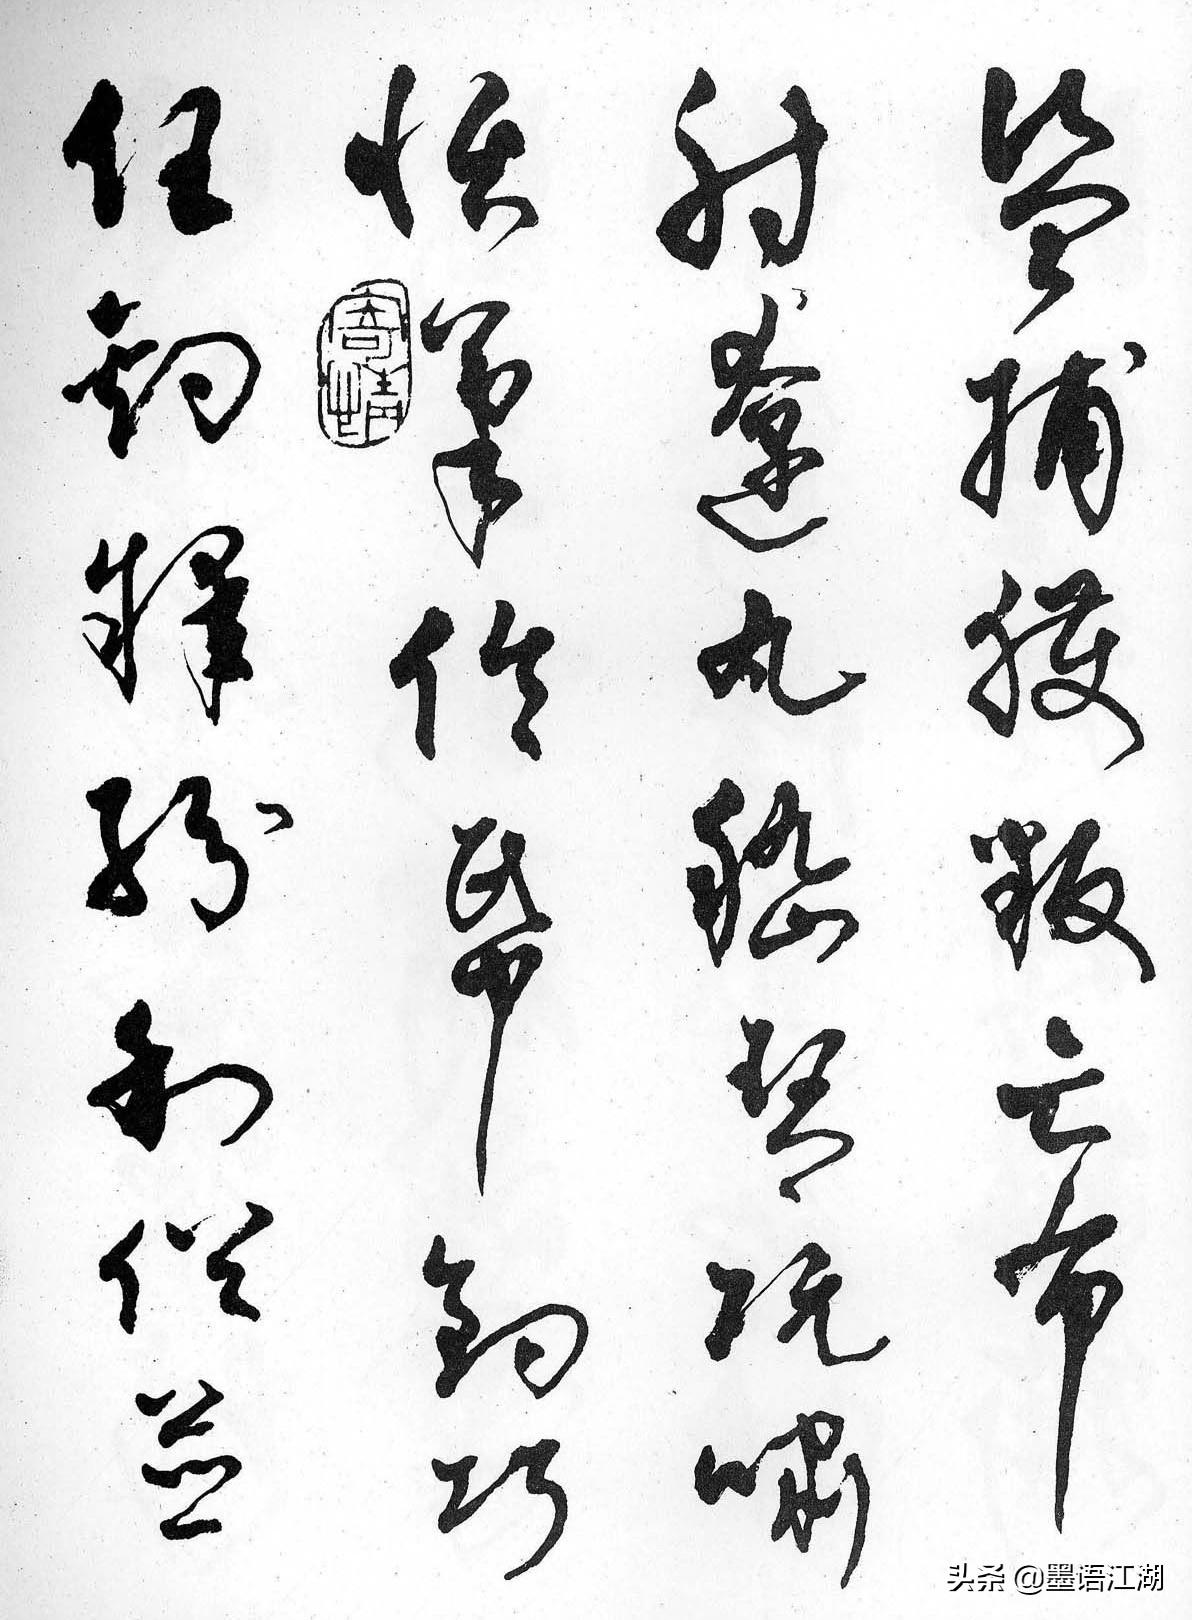 盗捕獲叛亡布
射遼丸嵇琴阮嘯
恬筆倫紙鈞巧
任釣釋紛利俗並
寄情
头条 @墨语江湖